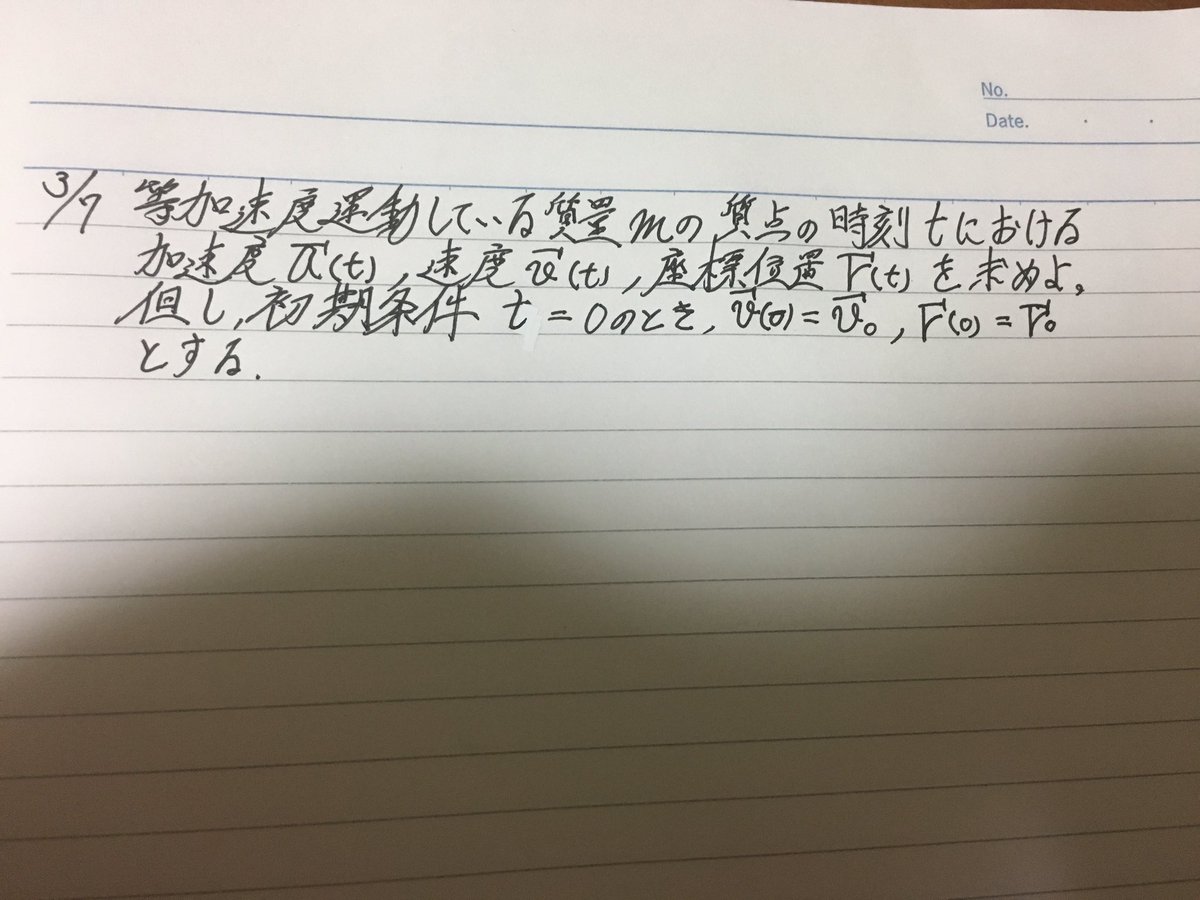 No.
Date. ・ ・
3/7 等加速度運動している質量mの質点の時刻tにおける
加速度 a⃗(t), 速度 v⃗(t), 座標位置 r⃗(t) を求めよ。
但し, 初期条件 t = 0のとき, v⃗(0) = v⃗₀, r⃗(0) = r⃗₀
とする.